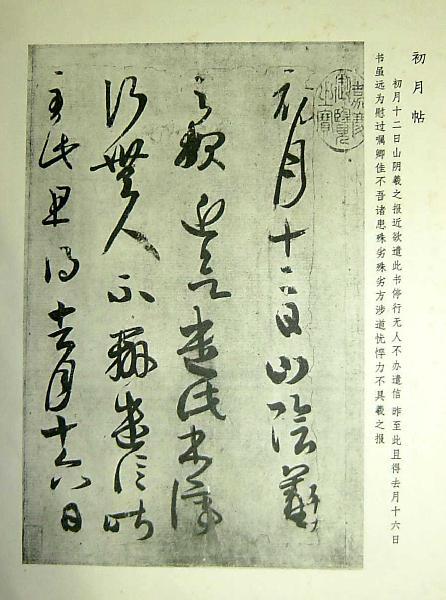 初月帖
初月十二日山阴羲之报近欲遣此书停行无人不办遣信 昨至此且得去月十六日
书虽远为慰过嘱卿佳不吾诸患殊劣殊劣方涉道忧悴力不具羲之报
嘉慶御覽之寶
初月十二日山陰羲
之報近欲遣此書停
行無人不辦遣信昨
至此且得去月十六日